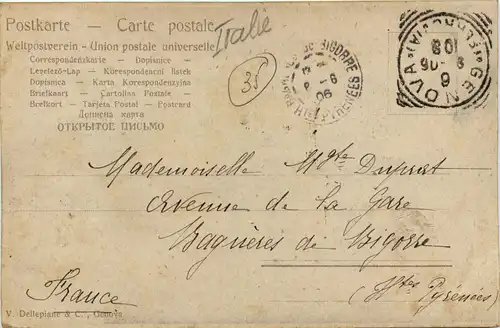 Postkarte — Carte postale
Weltpostverein - Union postale universelle
Correspondenzkarte - Dopisnice -
Levelező-Lap - Korespondencni listek
Dopisnica - Karta Korespondenzyjna
Briefkaart - Cartolina Postale -
Brefkort - Tarjeta Postal - Postcard
Дописна карта
ОТКРЫТОЕ ПИСЬМО
Italie
35
BIGORRE
8 - 6
06
Htes PYRENEES
GENOVA (FERROVIA)
9
6-06
10S
Mademoiselle Mgte Duprat
Avenue de la Gare
Bagnères de Bigorre
(Htes Pyrénées)
France
V. Dellepiane & C., Genova